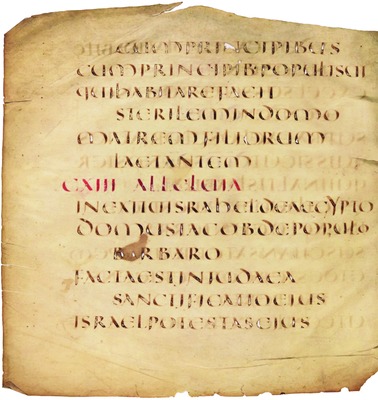 CUMPRINCIPIBUS
CUMPRINCIPIB·POPULISUI
QUIHABITAREFACIT
STERILEMINDOMO
MATREMFILIORUM
LAETANTEM
CXIII ALLELUIA
INEXITUISRAHELDEAEGYPTO
DOMUSIACOBDEPOPULO
BARBARO
FACTAESTINIUDAEA
SANCTIFICATIOEIUS
ISRAELPOTESTASEIUS